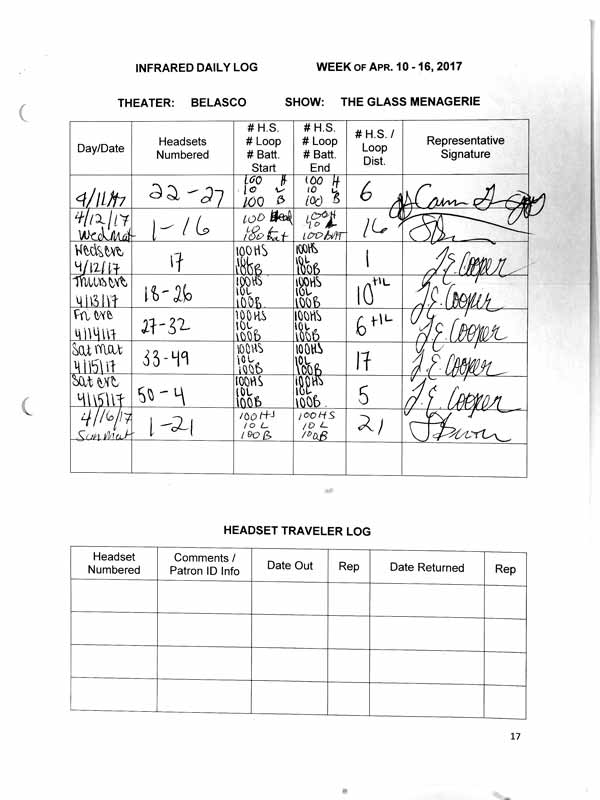 INFRARED DAILY LOG WEEK OF APR. 10 - 16, 2017
THEATER: BELASCO SHOW: THE GLASS MENAGERIE
Day/Date Headsets Numbered # H.S. # Loop # Batt. Start # H.S. # Loop # Batt. End # H.S. / Loop Dist. Representative Signature
4/11/17 22-27 100 H 10 L 100 B 100 H 10 L 100 B 6
4/12/17 Wed Mat 1-16 100 100 Batt 100 H 10 L 100 Batt 16
Wed eve 4/12/17 17 100HS 10L 100B 100HS 10L 100B 1 J.E. Cooper
Thurs eve 4/13/17 18-26 100HS 10L 100B 100HS 10L 100B 10+1L J.E. Cooper
Fri eve 4/14/17 27-32 100HS 10L 100B 100HS 10L 100B 6+1L J.E. Cooper
Sat mat 4/15/17 33-49 100HS 10L 100B 100HS 10L 100B 17 J.E. Cooper
Sat eve 4/15/17 50-4 100HS 10L 100B 100HS 10L 100B 5 J.E. Cooper
4/16/17 Sun mat 1-21 100HS 10L 100B 100HS 10L 100B 21
HEADSET TRAVELER LOG
Headset Numbered Comments / Patron ID Info Date Out Rep Date Returned Rep
17